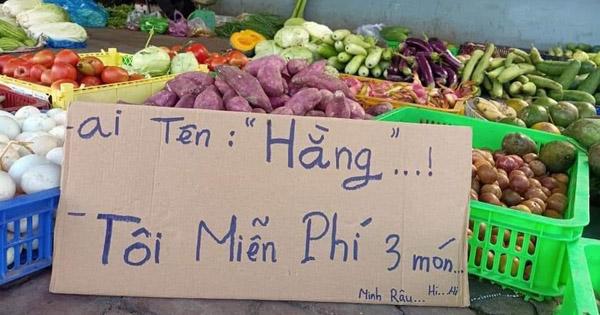 -ai Tên : "Hằng"...!
-Tôi Miễn Phí 3 món...
Minh Râu... Hi...Hi